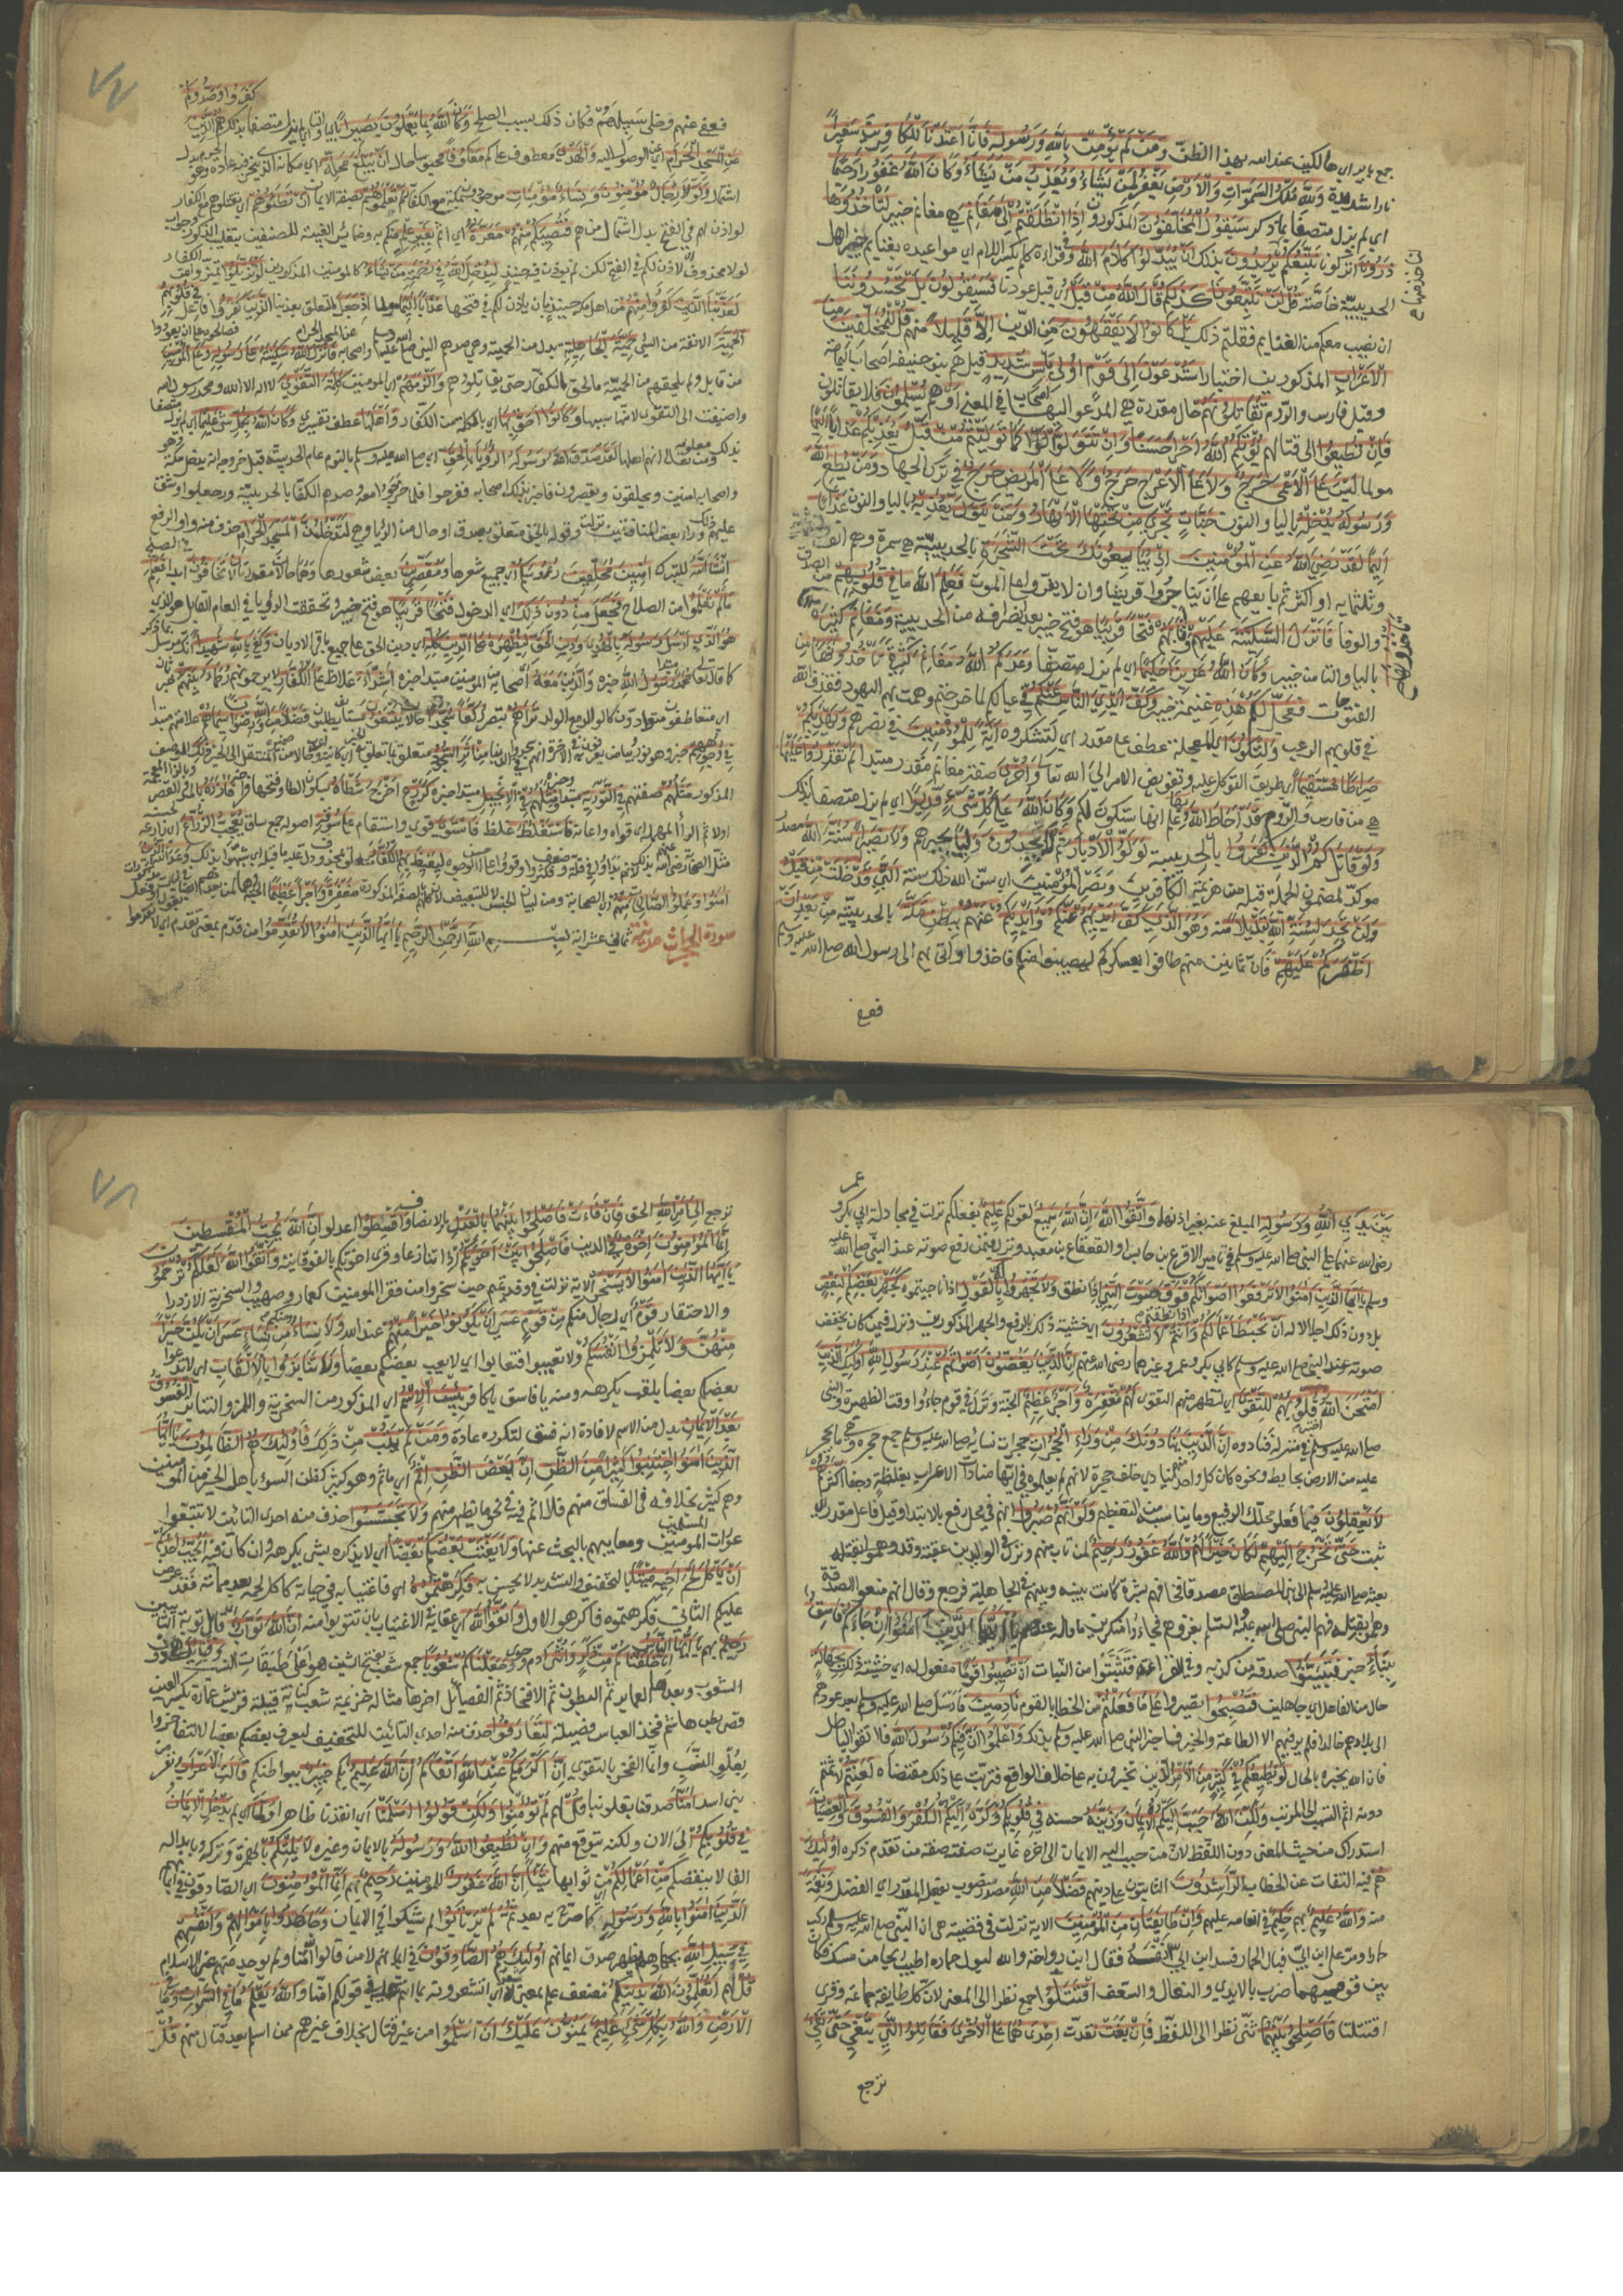 جمع باير اي هالكين عند الله بهذا الظن وَمَنْ لَمْ يُؤْمِنْ بِاللَّهِ وَرَسُولِهِ فَإِنَّا أَعْتَدْنَا لِلْكَافِرِينَ سَعِيرًا
نارا شديدة وَلِلَّهِ مُلْكُ السَّمَوَاتِ وَالْأَرْضِ يَغْفِرُ لِمَنْ يَشَاءُ وَيُعَذِّبُ مَنْ يَشَاءُ وَكَانَ اللَّهُ غَفُورًا رَحِيمًا
اي لم يزل متصفا بما ذكر سَيَقُولُ الْمُخَلَّفُونَ المذكورون إِذَا انْطَلَقْتُمْ إِلَى مَغَانِمَ هي مغانم خيبر لِتَأْخُذُوهَا
ذَرُونَا اتركونا نَتَّبِعْكُمْ يُرِيدُونَ بذلك أَنْ يُبَدِّلُوا كَلَامَ اللَّهِ وفي قراءة كلم بكسر اللام اي مواعيده بغنايم خيبر اهل
الحديبية خاصة قُلْ لَنْ تَتَّبِعُونَا كَذَلِكُمْ قَالَ اللَّهُ مِنْ قَبْلُ اي قبل عودنا فَسَيَقُولُونَ بَلْ تَحْسُدُونَنَا
ان نصيب معكم من الغنايم فقلتم ذلك بَلْ كَانُوا لَا يَفْقَهُونَ مِنَ الدين إِلَّا قَلِيلًا منهم قُلْ لِلْمُخَلَّفِينَ مِنَ
الْأَعْرَابِ المذكورين اختبارا سَتُدْعَوْنَ إِلَى قَوْمٍ أُولِي بَأْسٍ شَدِيدٍ قيل هم بنو حنيفة اصحاب اليمامة
وقيل فارس والروم تُقَاتِلُونَهُمْ حال مقدرة هي المدعو اليها في المعنى أَوْ هم يُسْلِمُونَ فلا يقاتلون
فَإِنْ تُطِيعُوا الى قتالهم يُؤْتِكُمُ اللَّهُ أَجْرًا حَسَنًا وَإِنْ تَتَوَلَّوْا كَمَا تَوَلَّيْتُمْ مِنْ قَبْلُ يُعَذِّبْكُمْ عَذَابًا أَلِيمًا
مولما لَيْسَ عَلَى الْأَعْمَى حَرَجٌ وَلَا عَلَى الْأَعْرَجِ حَرَجٌ وَلَا عَلَى الْمَرِيضِ حَرَجٌ في ترك الجهاد وَمَنْ يُطِعِ اللَّهَ
وَرَسُولَهُ يُدْخِلْهُ باليا والنون جَنَّاتٍ تَجْرِي مِنْ تَحْتِهَا الْأَنْهَارُ وَمَنْ يَتَوَلَّ يُعَذِّبْهُ باليا والنون عَذَابًا
أَلِيمًا لَقَدْ رَضِيَ اللَّهُ عَنِ الْمُؤْمِنِينَ إِذْ يُبَايِعُونَكَ تَحْتَ الشَّجَرَةِ بالحديبية هي سمرة وهم الف
وثلثمايه او اكثر ثم بايعهم على ان يناجزوا قريشا وان لا يفروا على الموت فَعَلِمَ الله مَا فِي قُلُوبِهِمْ من الصدق
والوفا فَأَنْزَلَ السَّكِينَةَ عَلَيْهِمْ وَأَثَابَهُمْ فَتْحًا قَرِيبًا هو فتح خيبر بعد انصرافه من الحديبية وَمَغَانِمَ كَثِيرَةً
باليا والتا من خيبر وَكَانَ اللَّهُ عَزِيزًا حَكِيمًا اي لم يزل متصفا وَعَدَكُمُ اللَّهُ مَغَانِمَ كَثِيرَةً تَأْخُذُونَهَا من
الفتوحات فَعَجَّلَ لَكُمْ هَذِهِ غنيمة خيبر وَكَفَّ أَيْدِيَ النَّاسِ عَنْكُمْ في عيالكم لما خرجتم وهمت بهم اليهود فقذف الله
في قلوبهم الرعب وَلِتَكُونَ اي المعجلة عطف على مقدر اي لتشكروه آيَةً لِلْمُؤْمِنِينَ في نصرهم وَيَهْدِيَكُمْ
صِرَاطًا مُسْتَقِيمًا اي طريق التوكل عليه وتفويض الامر الى الله تعالى وَأُخْرَى صفة مغانم مقدر مبتدا لَمْ تَقْدِرُوا عَلَيْهَا
هي من فارس والروم قَدْ أَحَاطَ اللَّهُ بِهَا علم انها ستكون لكم وَكَانَ اللَّهُ عَلَى كُلِّ شَيْءٍ قَدِيرًا اي لم يزل متصفا بذلك
وَلَوْ قَاتَلَكُمُ الَّذِينَ كَفَرُوا بالحديبية لَوَلَّوُا الْأَدْبَارَ ثُمَّ لَا يَجِدُونَ وَلِيًّا يحرسهم وَلَا نَصِيرًا سُنَّةَ اللَّهِ مصدر
موكد لمضمون الجملة قبله من هزيمة الكافرين ونصر المؤمنين اي سن الله ذلك سنة الَّتِي قَدْ خَلَتْ مِنْ قَبْلُ
وَلَنْ تَجِدَ لِسُنَّةِ اللَّهِ تَبْدِيلًا منه وَهُوَ الَّذِي كَفَّ أَيْدِيَهُمْ عَنْكُمْ وَأَيْدِيَكُمْ عَنْهُمْ بِبَطْنِ مَكَّةَ بالحديبية مِنْ بَعْدِ أَنْ
أَظْفَرَكُمْ عَلَيْهِمْ فان ثمانين منهم طافوا بعسكركم ليصيبوا منكم فاخذوا واتى بهم الى رسول الله صلى الله عليه وسلم
فعفى
فعفى عنهم وخلى سبيلهم فكان ذلك سبب الصلح وَكَانَ اللَّهُ بِمَا يَعْمَلُونَ بَصِيرًا باليا والتا اي لم يزل متصفا بذلك هُمُ الَّذِينَ كَفَرُوا وَصَدُّوكُمْ
عَنِ الْمَسْجِدِ الْحَرَامِ اي عن الوصول اليه وَالْهَدْيَ معطوف على كم مَعْكُوفًا محبوسا حال أَنْ يَبْلُغَ مَحِلَّهُ اي مكانه الذي ينحر فيه عادة وهو الحرم بدل
اشتمال وَلَوْلَا رِجَالٌ مُؤْمِنُونَ وَنِسَاءٌ مُؤْمِنَاتٌ موجودون بمكة مع الكفار لَمْ تَعْلَمُوهُمْ بصفة الايمان أَنْ تَطَئُوهُمْ اي تقتلوهم مع الكفار
لو اذن لهم في الفتح بدل اشتمال من هم فَتُصِيبَكُمْ مِنْهُمْ مَعَرَّةٌ اي اثم بِغَيْرِ عِلْمٍ منكم به وضماير الغيبة للصنفين بتغليب الذكور وجواب
لولا محذوف اي لاذن لكم في الفتح لكن لم يوذن فيه حينئذ لِيُدْخِلَ اللَّهُ فِي رَحْمَتِهِ مَنْ يَشَاءُ كالمومنين المذكورين لَوْ تَزَيَّلُوا تميزوا عن الكفار
لَعَذَّبْنَا الَّذِينَ كَفَرُوا مِنْهُمْ من اهل مكة حينئذ بان ياذن لكم في فتحها عَذَابًا أَلِيمًا مولما إِذْ جَعَلَ متعلق بعذبنا الَّذِينَ كَفَرُوا فاعل فِي قُلُوبِهِمُ
الْحَمِيَّةَ الانفة من الشي حَمِيَّةَ الْجَاهِلِيَّةِ بدل من الحمية وهي صدهم النبي صلى الله عليه وسلم واصحابه عن المسجد الحرام فَأَنْزَلَ اللَّهُ سَكِينَتَهُ عَلَى رَسُولِهِ وَعَلَى الْمُؤْمِنِينَ فصالحوهم على ان يعودوا
من قابل ولم يلحقهم من الحمية ما لحق الكفار حتى يقاتلوهم وَأَلْزَمَهُمْ اي المومنين كَلِمَةَ التَّقْوَى لا اله الا الله ومحمد رسول الله
واضيفت الى التقوى لانها سببها وَكَانُوا أَحَقَّ بِهَا اي بالكلمة من الكفار وَأَهْلَهَا عطف تفسيري وَكَانَ اللَّهُ بِكُلِّ شَيْءٍ عَلِيمًا اي لم يزل متصفا
بذلك ومن معلومه تعالى انهم اهلها لَقَدْ صَدَقَ اللَّهُ رَسُولَهُ الرُّؤْيَا بِالْحَقِّ اي صلى الله عليه وسلم بالنوم عام الحديبية قبل خروجه انه يدخل مكة هو
واصحابه امنين ويحلقون ويقصرون فاخبر بذلك اصحابه ففرحوا فلما خرجوا معه وصدهم الكفار بالحديبية ورجعوا وشق
عليهم ذلك وراب بعض المنافقين نزلت وقوله بالحق متعلق بصدق او حال من الرؤيا وهي لَتَدْخُلُنَّ الْمَسْجِدَ الْحَرَامَ
إِنْ شَاءَ اللَّهُ للتبرك آمِنِينَ مُحَلِّقِينَ رُءُوسَكُمْ اي جميع شعرها وَمُقَصِّرِينَ بعض شعورها وهما حالان مقدرتان لَا تَخَافُونَ ابدا فَعَلِمَ في الصلح
مَا لَمْ تَعْلَمُوا من الصلاح فَجَعَلَ مِنْ دُونِ ذَلِكَ اي الدخول فَتْحًا قَرِيبًا هو فتح خيبر وتحققت الرؤيا في العام القابل
هُوَ الَّذِي أَرْسَلَ رَسُولَهُ بِالْهُدَى وَدِينِ الْحَقِّ لِيُظْهِرَهُ عَلَى الدِّينِ كُلِّهِ اي دين الحق على جميع باقي الاديان وَكَفَى بِاللَّهِ شَهِيدًا انك مرسل بما ذكر
كما قال تعالى مُحَمَّدٌ مبتدا رَسُولُ اللَّهِ خبره وَالَّذِينَ مَعَهُ اي اصحابه المومنين مبتدا خبره أَشِدَّاءُ غلاظ عَلَى الْكُفَّارِ لا يرحمونهم رُحَمَاءُ بَيْنَهُمْ خبر ثان
اي متعاطفون متوادون كالوالد مع الولد تَرَاهُمْ تبصرهم رُكَّعًا سُجَّدًا حالان يَبْتَغُونَ مستانف يطلبون فَضْلًا مِنَ اللَّهِ وَرِضْوَانًا سِيمَاهُمْ علامتهم مبتدا
فِي وُجُوهِهِمْ خبر وهو نور وبياض يعرفون به في الاخرة انهم سجدوا في الدنيا مِنْ أَثَرِ السُّجُودِ متعلق بما تعلق به الخبر اي كاينة
المذكور مَثَلُهُمْ صفتهم فِي التَّوْرَاةِ مبتدا وخبره وَمَثَلُهُمْ فِي الْإِنْجِيلِ مبتدا خبره كَزَرْعٍ أَخْرَجَ شَطْأَهُ بسكون الطا وفتحها فراخه فَآزَرَهُ بالمد والقصر
قواه واعانه فَاسْتَغْلَظَ غلظ فَاسْتَوَى قوي واستقام عَلَى سُوقِهِ اصوله جمع ساق يُعْجِبُ الزُّرَّاعَ اي زراعه لحسنه
مثل الصحابة رضي الله عنهم بذلك لانهم بدؤا في قلة وضعف فكثروا وقووا على احسن الوجوه لِيَغِيظَ بِهِمُ الْكُفَّارَ متعلق بمحذوف دل عليه ما قبله اي شبهوا بذلك وَعَدَ اللَّهُ الَّذِينَ
آمَنُوا وَعَمِلُوا الصَّالِحَاتِ مِنْهُمْ اي الصحابة ومن لبيان الجنس لا للتبعيض لانهم كلهم بالصفة المذكورة مَغْفِرَةً وَأَجْرًا عَظِيمًا الجنة
سورة الحجرات مدنية ثماني عشرة اية بسم الله الرحمن الرحيم يَا أَيُّهَا الَّذِينَ آمَنُوا لَا تُقَدِّمُوا من قدم بمعنى تقدم اي لا تقدموا
بَيْنَ يَدَيِ اللَّهِ وَرَسُولِهِ المبلغ عنه بغير اذنهما وَاتَّقُوا اللَّهَ إِنَّ اللَّهَ سَمِيعٌ لقولكم عَلِيمٌ بفعلكم نزلت في مجادلة ابي بكر وعمر
رضي الله عنهما على النبي صلى الله عليه وسلم في تامير الاقرع بن حابس او القعقاع بن معبد ونزل فيمن رفع صوته عند النبي صلى الله عليه
وسلم يَا أَيُّهَا الَّذِينَ آمَنُوا لَا تَرْفَعُوا أَصْوَاتَكُمْ فَوْقَ صَوْتِ النَّبِيِّ اذا نطق وَلَا تَجْهَرُوا لَهُ بِالْقَوْلِ اذا ناجيتموه كَجَهْرِ بَعْضِكُمْ لِبَعْضٍ
بل دون ذلك اجلالا له أَنْ تَحْبَطَ أَعْمَالُكُمْ وَأَنْتُمْ لَا تَشْعُرُونَ اي خشية ذلك بالرفع والجهر المذكورين ونزل فيمن كان يخفض
صوته عند النبي صلى الله عليه وسلم كابي بكر وعمر وغيرهما رضي الله عنهم إِنَّ الَّذِينَ يَغُضُّونَ أَصْوَاتَهُمْ عِنْدَ رَسُولِ اللَّهِ أُولَئِكَ الَّذِينَ
امْتَحَنَ اللَّهُ قُلُوبَهُمْ لِلتَّقْوَى اي لتظهر منهم التقوى لَهُمْ مَغْفِرَةٌ وَأَجْرٌ عَظِيمٌ الجنة ونزل في قوم جاءوا وقت الظهيرة والنبي
صلى الله عليه وسلم في منزله فنادوه إِنَّ الَّذِينَ يُنَادُونَكَ مِنْ وَرَاءِ الْحُجُرَاتِ حجرات نسائه صلى الله عليه وسلم جمع حجرة وهي ما يحجر
عليه من الارض بحايط ونحوه كان كل واحد منهم نادى خلف حجرة لانهم لم يعلموه في ايها مناداة الاعراب بغلظة وجفا أَكْثَرُهُمْ
لَا يَعْقِلُونَ فيما فعلوه محلك الرفيع وما يناسبه من التعظيم وَلَوْ أَنَّهُمْ صَبَرُوا انهم في محل رفع بالابتدا وقيل فاعل لفعل مقدر اي
ثبت حَتَّى تَخْرُجَ إِلَيْهِمْ لَكَانَ خَيْرًا لَهُمْ وَاللَّهُ غَفُورٌ رَحِيمٌ لمن تاب منهم ونزل في الوليد بن عقبة وقد
بعثه صلى الله عليه وسلم الى بني المصطلق مصدقا فخافهم لترة كانت بينه وبينهم في الجاهلية فرجع وقال انهم منعوا الصدقة
وهموا بقتله فهم النبي صلى الله عليه وسلم بغزوهم فجاؤا منكرين ما قاله عنهم يَا أَيُّهَا الَّذِينَ آمَنُوا إِنْ جَاءَكُمْ فَاسِقٌ
بِنَبَإٍ خبر فَتَبَيَّنُوا صدقه من كذبه وفي قراءة فتثبتوا من الثبات أَنْ تُصِيبُوا قَوْمًا مفعول له اي خشية ذلك بِجَهَالَةٍ
حال من الفاعل اي جاهلين فَتُصْبِحُوا تصيروا عَلَى مَا فَعَلْتُمْ من الخطا بالقوم نَادِمِينَ وارسل صلى الله عليه وسلم بعد عودهم
الى بلادهم خالدا فلم ير فيهم الا الطاعة والخير فاخبر النبي صلى الله عليه وسلم بذلك وَاعْلَمُوا أَنَّ فِيكُمْ رَسُولَ اللَّهِ فلا تقولوا الباطل
فان الله يخبره بالحال لَوْ يُطِيعُكُمْ فِي كَثِيرٍ مِنَ الْأَمْرِ الذي تخبرون به على خلاف الواقع فيرتب على ذلك مقتضاه لَعَنِتُّمْ لاثمتم
دونه اثم التسبب الى المرتب وَلَكِنَّ اللَّهَ حَبَّبَ إِلَيْكُمُ الْإِيمَانَ وَزَيَّنَهُ حسنه فِي قُلُوبِكُمْ وَكَرَّهَ إِلَيْكُمُ الْكُفْرَ وَالْفُسُوقَ وَالْعِصْيَانَ
استدراك من حيث المعنى دون اللفظ لان من حبب اليه الايمان الى اخره غايرت صفته صفة من تقدم ذكره أُولَئِكَ
هُمُ فيه التفات عن الخطاب الرَّاشِدُونَ الثابتون على دينهم فَضْلًا مِنَ اللَّهِ مصدر منصوب بفعله المقدر اي افضل وَنِعْمَةً
منه وَاللَّهُ عَلِيمٌ بهم حَكِيمٌ في انعامه عليهم وَإِنْ طَائِفَتَانِ مِنَ الْمُؤْمِنِينَ الاية نزلت في قضية هي ان النبي صلى الله عليه وسلم ركب
حمارا ومر على ابن ابي فبال الحمار فسد ابن ابي انفه فقال ابن رواحة والله لبول حماره اطيب ريحا من مسك فكان
بين قوميهما ضرب بالايدي والنعال والسعف اقْتَتَلُوا جمع نظرا الى المعنى لان كل طايفة جماعة وقري
اقتتلتا فَأَصْلِحُوا بَيْنَهُمَا ثني نظرا الى اللفظ فَإِنْ بَغَتْ تعدت إِحْدَاهُمَا عَلَى الْأُخْرَى فَقَاتِلُوا الَّتِي تَبْغِي حَتَّى تَفِيءَ
ترجع
ترجع إِلَى أَمْرِ اللَّهِ الحق فَإِنْ فَاءَتْ فَأَصْلِحُوا بَيْنَهُمَا بِالْعَدْلِ بالانصاف وَأَقْسِطُوا اعدلوا إِنَّ اللَّهَ يُحِبُّ الْمُقْسِطِينَ
إِنَّمَا الْمُؤْمِنُونَ إِخْوَةٌ في الدين فَأَصْلِحُوا بَيْنَ أَخَوَيْكُمْ اذا تنازعا وقرئ اخوتكم بالفوقانية وَاتَّقُوا اللَّهَ لَعَلَّكُمْ تُرْحَمُونَ
يَا أَيُّهَا الَّذِينَ آمَنُوا لَا يَسْخَرْ الاية نزلت في وفد تميم حين سخروا من فقرا المومنين كعمار وصهيب والسخرية الازدرا
والاحتقار قَوْمٌ اي رجال منكم مِنْ قَوْمٍ عَسَى أَنْ يَكُونُوا خَيْرًا مِنْهُمْ عند الله وَلَا نِسَاءٌ منكم مِنْ نِسَاءٍ عَسَى أَنْ يَكُنَّ خَيْرًا
مِنْهُنَّ وَلَا تَلْمِزُوا أَنْفُسَكُمْ لا تعيبوا فتعابوا اي لا يعب بعضكم بعضا وَلَا تَنَابَزُوا بِالْأَلْقَابِ اي لا يدعوا
بعضكم بعضا بلقب يكرهه ومنه يا فاسق يا كافر بِئْسَ الِاسْمُ اي المذكور من السخرية واللمز والتنابز الْفُسُوقُ
بَعْدَ الْإِيمَانِ بدل من الاسم لافادة انه فسق لتكرره عادة وَمَنْ لَمْ يَتُبْ مِنْ ذلك فَأُولَئِكَ هُمُ الظَّالِمُونَ يَا أَيُّهَا
الَّذِينَ آمَنُوا اجْتَنِبُوا كَثِيرًا مِنَ الظَّنِّ إِنَّ بَعْضَ الظَّنِّ إِثْمٌ اي ماثم وهو كثير كظن السوء باهل الخير من المومنين
وهم كثير بخلافه في الفساق منهم فلا اثم فيه في نحو ما يظهر منهم وَلَا تَجَسَّسُوا حذف منه احدى التائين لا تتبعوا
عورات المومنين ومعايبهم بالبحث عنها وَلَا يَغْتَبْ بَعْضُكُمْ بَعْضًا اي لا يذكره بشي يكرهه وان كان فيه أَيُحِبُّ أَحَدُكُمْ
أَنْ يَأْكُلَ لَحْمَ أَخِيهِ مَيْتًا بالتخفيف والتشديد لا يحس به فَكَرِهْتُمُوهُ اي فاغتيابه في حياته كاكل لحمه بعد مماته فقد عرض
عليكم الثاني فكرهتموه فاكرهوا الاول وَاتَّقُوا اللَّهَ اي عقابه في الاغتياب بان تتوبوا منه إِنَّ اللَّهَ تَوَّابٌ قابل توبة التايبين
رَحِيمٌ بهم يَا أَيُّهَا النَّاسُ إِنَّا خَلَقْنَاكُمْ مِنْ ذَكَرٍ وَأُنْثَى ادم وحوا وَجَعَلْنَاكُمْ شُعُوبًا جمع شعب بفتح الشين هو اعلى طبقات النسب وَقَبَائِلَ هي دون
الشعوب وبعدها العماير ثم البطون ثم الافخاذ ثم الفصائل اخرها مثاله خزيمة شعب كنانة قبيلة قريش عمارة بكسر العين
قصي بطن هاشم فخذ العباس فصيلة لِتَعَارَفُوا حذف منه احدى التائين للتخفيف ليعرف بعضكم بعضا لا لتفاخروا
بعلو النسب وانما الفخر بالتقوى إِنَّ أَكْرَمَكُمْ عِنْدَ اللَّهِ أَتْقَاكُمْ إِنَّ اللَّهَ عَلِيمٌ بكم خَبِيرٌ ببواطنكم قَالَتِ الْأَعْرَابُ نفر من
بني اسد آمَنَّا صدقنا بقلوبنا قُلْ لهم لَمْ تُؤْمِنُوا وَلَكِنْ قُولُوا أَسْلَمْنَا اي انقدنا ظاهرا وَلَمَّا اي لم يَدْخُلِ الْإِيمَانُ
فِي قُلُوبِكُمْ الى الان ولكنه يتوقع منهم وَإِنْ تُطِيعُوا اللَّهَ وَرَسُولَهُ بالايمان وغيره لَا يَلِتْكُمْ بالهمزة وتركه وبابداله
الفا لا ينقصكم مِنْ أَعْمَالِكُمْ اي ثوابها شَيْئًا إِنَّ اللَّهَ غَفُورٌ للمومنين رَحِيمٌ بهم إِنَّمَا الْمُؤْمِنُونَ اي الصادقون في ايمانهم
الَّذِينَ آمَنُوا بِاللَّهِ وَرَسُولِهِ كما صرح به بعد ثُمَّ لَمْ يَرْتَابُوا لم يشكوا في الايمان وَجَاهَدُوا بِأَمْوَالِهِمْ وَأَنْفُسِهِمْ
فِي سَبِيلِ اللَّهِ بجهادهم يظهر صدق ايمانهم أُولَئِكَ هُمُ الصَّادِقُونَ في ايمانهم لا من قالوا امنا ولم يوجد منهم غير الاسلام
قُلْ لهم أَتُعَلِّمُونَ اللَّهَ بِدِينِكُمْ مضعف علم بمعنى شعر اي اتشعرونه بما انتم عليه في قولكم امنا وَاللَّهُ يَعْلَمُ مَا فِي السَّمَوَاتِ وَمَا فِي
الْأَرْضِ وَاللَّهُ بِكُلِّ شَيْءٍ عَلِيمٌ يَمُنُّونَ عَلَيْكَ أَنْ أَسْلَمُوا من غير قتال بخلاف غيرهم ممن اسلم بعد قتال منهم قُلْ